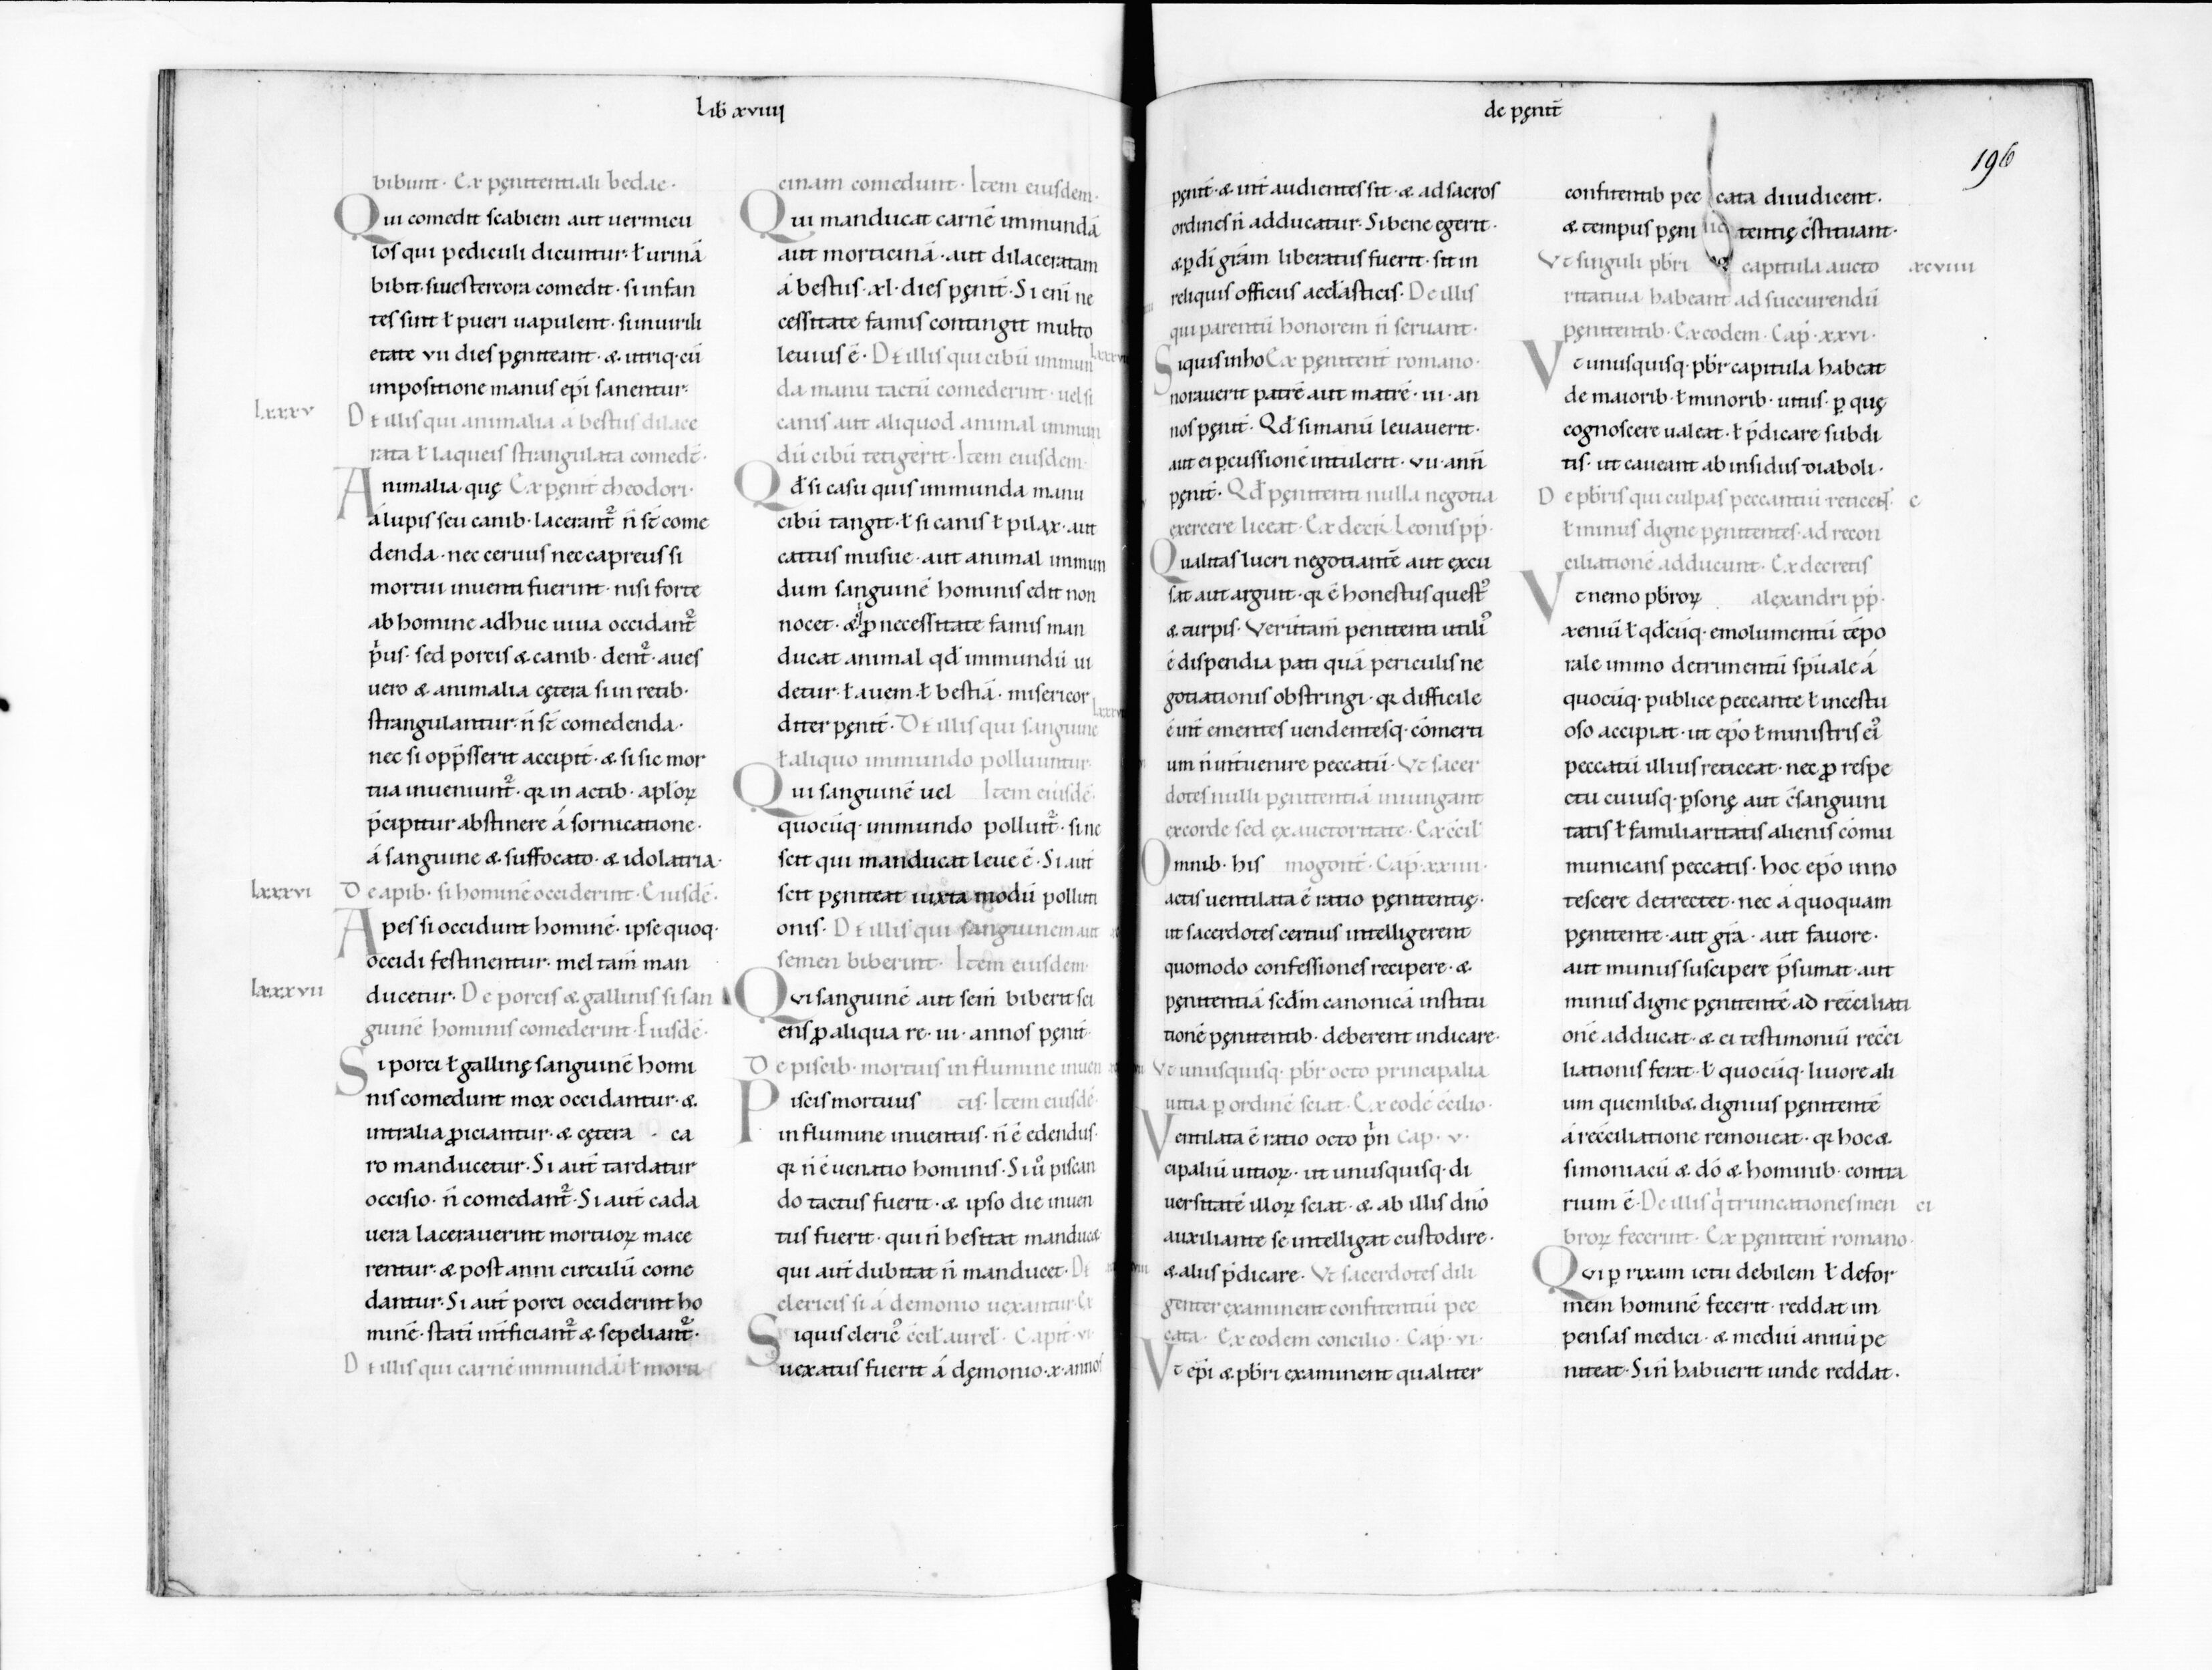 Lib xviiii
bibunt· Ex pęnitentiali bedae·
Qui comedit scabiem aut uermicu
los qui pediculi dicuntur· ł urinā
bibit· siue stercora comedit· si infan
tes sint ł pueri uapulent· si in uirili
etate vii dies pęniteant· & utriq· cū
impositione manus ep̄i sanentur·
lxxxv
De illis qui animalia á bestiis dilace
rata ł laqueis strangulata comedē·
Animalia quę Ex pęnit̄ theodori·
á lupis seu canib· lacerant̄ n̄ st̄ come
denda· nec ceruus nec capreus si
mortui inuenti fuerint· nisi forte
ab homine adhuc uiua occidant̄
p̄us· sed porcis & canib· dent̄· aues
uero & animalia cętera si in retib·
strangulantur· n̄ st̄ comedenda·
nec si opp̄sserit accipit̄· & si sic mor
tua inueniunt̄· qr in actib· apl̄oꝝ
p̄cipitur abstinere á fornicatione·
á sanguine & suffocato· & idolatria·
lxxxvi
De apib· si hominē occiderint· Eiusdē·
Apes si occidunt hominē· ipse quoq·
occidi festinentur· mel tam̄ man
lxxxvii
ducetur· De porcis & gallinis si san
guinē hominis comederint· Eiusdē·
Si porci ł gallinę sanguinē homi
nis comedunt mox occidantur· &
intralia ꝓiciantur· & cętera ca
ro manducetur· Si aut̄ tardatur
occisio· n̄ comedant̄· Si aut̄ cada
uera lacerauerint mortuoꝝ mace
rentur· & post anni circulū come
dantur· Si aut̄ porci occiderint ho
minē· stati interficiant̄ & sepeliant̄·
De illis qui carnē immundā ł morti
cinam comedunt· Item eiusdem·
Qui manducat carnē immundā
aut morticinā· aut dilaceratam
á bestiis· xl· dies pęnit̄· Si eni ne
cessitate famis contingit multo
leuius ē· De illis qui cibū immun
da manu tactū comederint· uel si
canis aut aliquod animal immun
dū cibū tetigerit· Item eiusdem·
Qd̄ si casu quis immunda manu
cibū tangit· ł si canis ł pilax· aut
cattus musue· aut animal immun
dum sanguinē hominis edit non
nocet· & q̇ ꝓ necessitate famis man
ducat animal qd̄ immundū ui
detur· ł auem· ł bestiā· misericor
diter pęnit̄· De illis qui sanguine
ł aliquo immundo polluuntur·
Qui sanguinē uel Item eiusdē·
quocūq· immundo polluit̄· si ne
scit qui manducat leue ē· Si aut̄
scit pęniteat iuxta modū polluti
onis· De illis qui sanguinem aut
semen biberint· Item eiusdem·
Qvi sanguinē aut sem̄ biberit sci
ens ꝓ aliqua re· iii· annos pęnit̄·
De piscib· mortuis in flumine inuen
Piscis mortuus tis· Item eiusdē·
in flumine inuentus· n̄ ē edendus·
qr n̄ ē uenatio hominis· Si u̇ piscan
do tactus fuerit· & ipso die inuen
tus fuerit· qui n̄ hesitat manduc&
qui aut̄ dubitat n̄ manducet· De
clericis si á demonio uexantur· Ex
Siquis cleric᾿ cc̄il aurel̄· Capit̄· vi·
uexatus fuerit á dęmonio· x· annos
de pęnit̄
196
pęnit̄· & int̄ audientes sit· & ad sacros
ordines n̄ adducatur· Si bene egerit·
& p̱ dī grām liberatus fuerit· sit in
reliquis officiis aecl̄asticis· De illis
qui parentū honorem n̄ seruant·
Siquis inho Ex pęnitent̄ romano·
norauerit patrē aut matrē· iii· an
nos pęnit̄· Qd̄ si manū leuauerit·
aut ei p̱cussionē intulerit· vii· ann̄
pęnit̄· Qd̄ pęnitenti nulla negotia
exercere liceat· Ex decr̄ Leonis pp̄·
Qualitas lucri negotiantē aut excu
sat aut arguit· qr ē honestus quest᾿
& turpis· Veruntam̄ penitenti utili᾿
ē dispendia pati quā periculis ne
gotiationis obstringi· qr difficile
ē int̄ ementes uendentesq· cōmerti
um n̄ interuenire peccatū· Vt sacer
dotes nulli pęnitentiā iniungant
ex corde sed ex auctoritate· Ex cc̄il
Omnib· his mogont̄· Cap̄· xxiiii·
actis uentilata ē ratio pęnitentię·
ut sacerdotes certius intelligerent
quomodo confessiones recipere· &
pęnitentiā scd̄m canonicā institu
tionē pęnitentib· deberent indicare·
Vt unusquisq· pb̄r octo principalia
uitia p̱ ordinē sciat· Ex eodē cc̄ilio·
Ventilata ē ratio octo p̄n Cap· v·
cipaliū uitioꝝ· ut unusquisq· di
uersitatē illoꝝ sciat· & ab illis dn̄o
auxiliante se intelligat custodire·
& aliis p̄dicare· Vt sacerdotes dili
genter examinent confitentiū pec
cata· Ex eodem concilio· Cap· vi·
Vt ep̄i & pb̄ri examinent qualiter
confitentib pec cata diiudicent·
& tempus pęni tentię c̄stituant·
Vt singuli pb̄ri capitula aucto xcviiii
ritatiua habeant ad succurendū
pęnitentib· Ex eodem· Cap̄· xxvi·
Vt unusquisq· pb̄r capitula habeat
de maiorib· ł minorib· uitiis· p̱ quę
cognoscere ualeat· ł p̄dicare subdi
tis· ut caueant ab insidiis diaboli·
De pb̄ris qui culpas peccantiū reticent c
ł minus digne pęnitentes· ad recon
ciliationē adducunt· Ex decretis
Vt nemo pb̄roꝝ alęxandri pp̄·
xeniū ł qd̄cūq· emolumentū tēpo
rale immo detrimentū sp̄uale á
quocūq· publice peccante ł incestu
oso accipiat· ut ep̄o ł ministris ei᾿
peccatū illius reticeat· nec ꝓ respe
ctu cuiusq· p̱sonę aut c̄sanguini
tatis ł familiaritatis alienis cōmu
municans peccatis· hoc ep̄o inno
tescere detrectet· nec á quoquam
pęnitente· aut grā· aut fauore·
aut munus suscipere p̄sumat· aut
minus digne pęnitentē ad rec̄ciliati
onē adducat· & ei testimoniū rec̄ci
liationis ferat· ł quocūq· liuore ali
um quemlib&· dignius pęnitentē
á rec̄ciliatione remoueat· qr hoc &
simoniacū & dō & hominib· contra
rium ē· De illis q̇ truncationes men ci
broꝝ fecerint· Ex pęnitent̄ romano·
Qvi p̱ rixam ictu debilem ł defor
mem hominē fecerit· reddat im
pensas medici· & mediū annū pe
niteat· Si n̄ habuerit unde reddat·